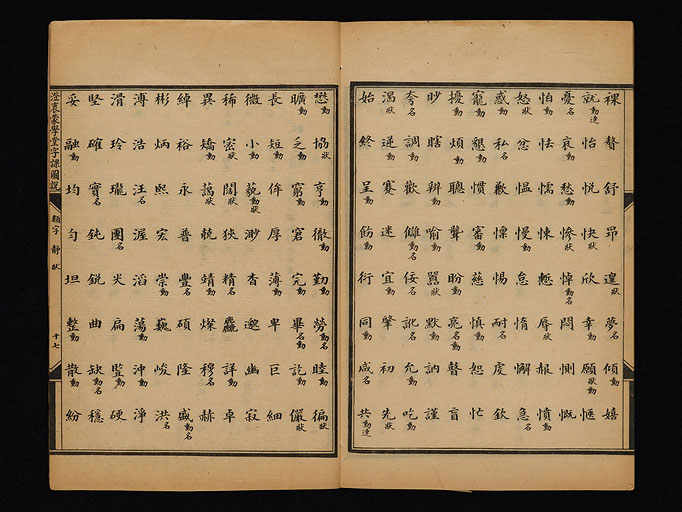 裸瞽舒昂遑狀夢名傾動嬉
就動連怡悅快狀欣幸動願狀動愜
憂名哀動愁動慘狀悼動名悶惻慨
怕動怯懦悚慙辱狀赧憤動
怒狀忿慍慢動怠惰懈急名
感動私名歉慄惕耐名虔欽
寵動懇動慣審動慈慎動恕忙
擾動煩動聰聾盼動亮動名瞽盲
眇瞎辨動喻動囂狀默動訥謹
夸名調動歡讎動名佞名訛名允動吃動
渴狀逆動蹇迷宜動肇初先狀
始終呈動飭動衍同動咸名共動連
懋動協狀亨動徹動勤動勞動名睦動徧狀
曠動乏動窮動窘完動畢動名訖動儼狀
長短動侔厚薄動卑巨細
微小動藐動狀渺杳邈幽寂
稀密狀闊狀狹精名麤詳卓
異矯動藹狀兢靖動燦穆名赫
綽裕永普豐名碩隆盛動名
彬炳熙宏崇動巍峻洪名
溥浩汪名渥滔蕩動沖動淨
滑玲瓏團名尖扁豎硬
堅確實名鈍銳曲缺動名穩
妥融動均勻坦整動散動紛
澄衷蒙學堂字課圖說　類字　靜狀　十七